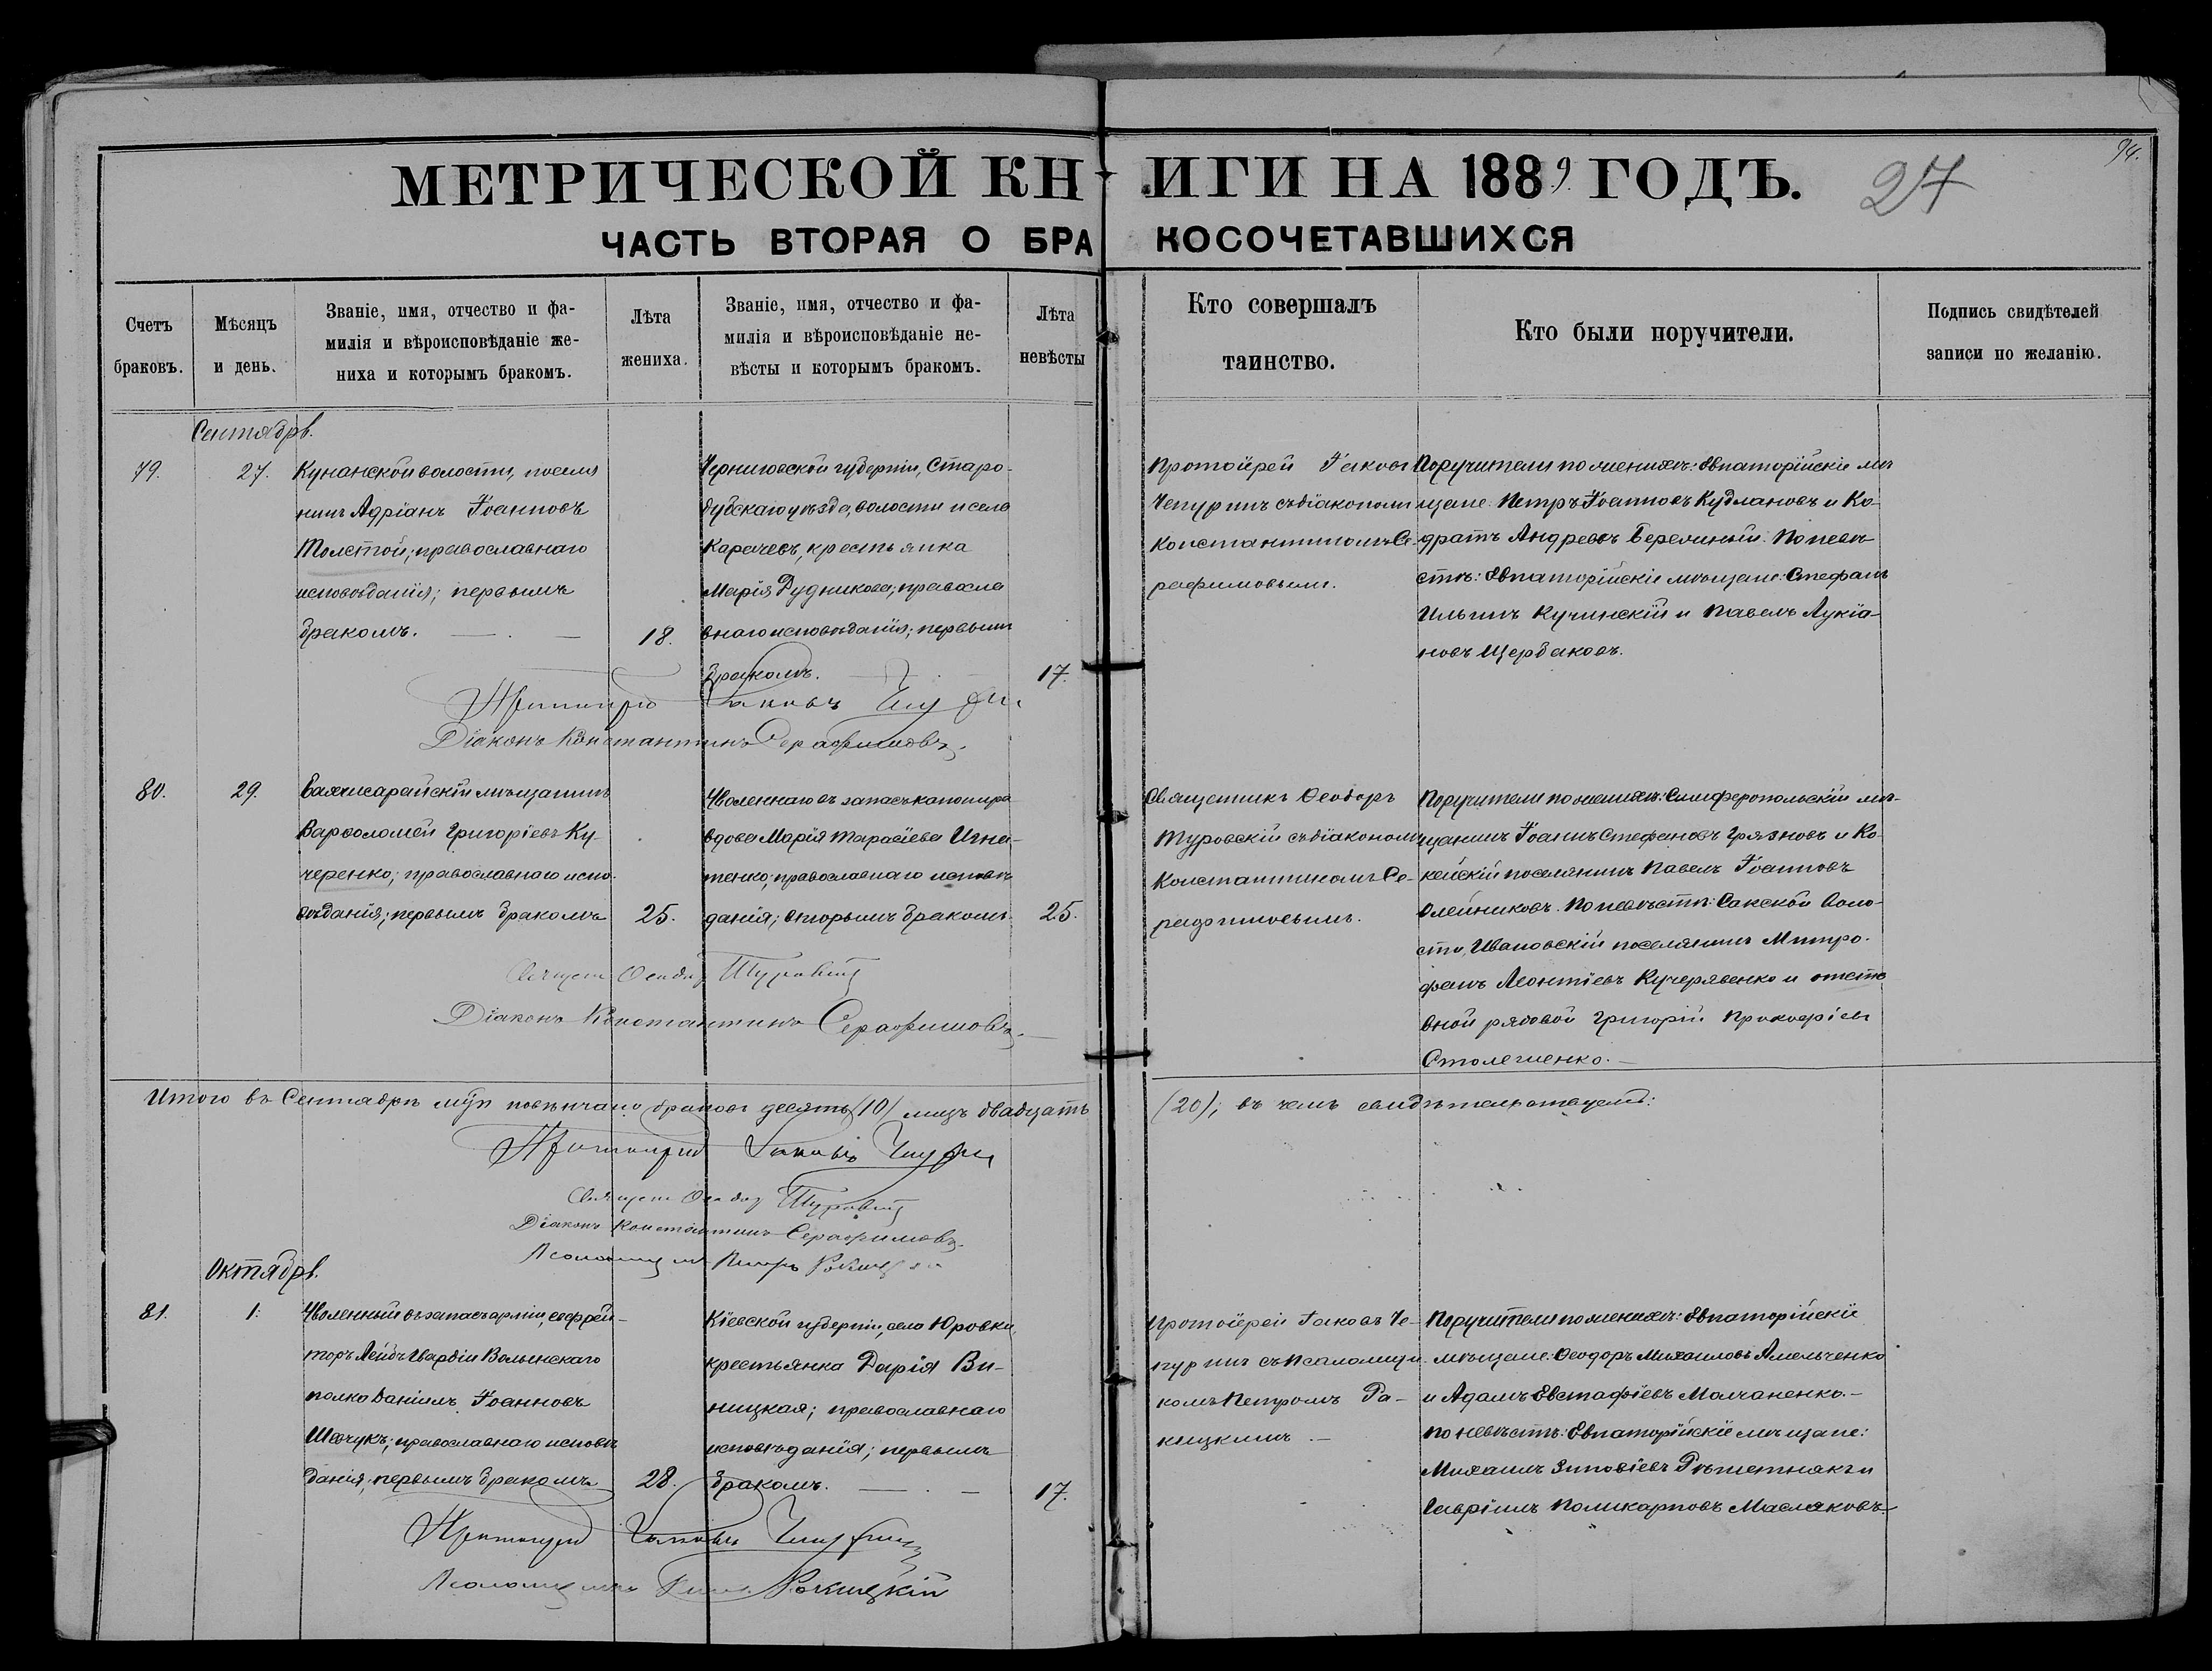 94.
МЕТРИЧЕСКОЙ КНИГИ НА 1889 ГОДЪ.
27
ЧАСТЬ ВТОРАЯ О БРАКОСОЧЕТАВШИХСЯ
Счетъ браковъ.
Мѣсяцъ и день.
Званіе, имя, отчество и фа-
милія и вѣроисповѣданіе же-
ниха и которымъ бракомъ.
Лѣта жениха.
Званіе, имя, отчество и фа-
милія и вѣроисповѣданіе не-
вѣсты и которымъ бракомъ.
Лѣта невѣсты
Кто совершалъ
таинство.
Кто были поручители.
Подпись свидѣтелей
записи по желанію.
Сентябрь.
79.
27.
Кунанской волости, поселя
нинъ Адріанъ Іоанновъ
Толстой; православнаго
исповѣданія; первымъ
бракомъ.
18.
Черниговской губерніи, Старо-
дубскаго уѣзда, волости и села
Карачевъ, крестьянка
Марія Рудникова; правосла
внаго исповѣданія; первымъ
бракомъ.
17.
Протоіерей Іаковъ
Чепуринъ съ діакономъ
Константиномъ Се-
рафимовымъ.
Поручители по женихѣ: Евпаторійскіе мѣ
щане: Петръ Іоанновъ Кудлановъ и Ко-
дратъ Андреевъ Бережный. По невѣ
стѣ: Евпаторійскіе мѣщане: Стефанъ
Ильинъ Кучинскій и Павелъ Лукіа-
новъ Щербаковъ.
Протоіерей Іаковъ Чепуринъ
Діаконъ Константинъ Серафимовъ.
80.
29.
Бахчисарайскій мѣщанинъ
Варѳоломей Григоріевъ Ку-
черенко; православнаго испо-
вѣданія; первымъ бракомъ
25.
Уволеннаго въ запасъ канонира
вдова Марія Тарасіева Игна-
тенко; православнаго исповѣ
данія; вторымъ бракомъ.
25.
Священникъ Ѳеодоръ
Туровскій съ діакономъ
Константиномъ Се-
рафимовымъ.
Поручители по женихѣ: Симферопольскій мѣ-
щанинъ Іоаннъ Стефановъ Грязновъ и Ко-
кейскій поселянинъ Павелъ Іоанновъ
Олейниковъ. По невѣстѣ: Сакской воло-
сти, Ивановскій поселянинъ Митро-
фанъ Леонтіевъ Кучерявенко и отста
вной рядовой Григорій Прокофіевъ
Столегненко.
Священ Ѳеодоръ Туровскій
Діаконъ Константинъ Серафимовъ.
Итого въ Сентябрѣ мцѣ повѣнчано браковъ десять (10) лицъ двадцать (20); въ чемъ свидѣтельствуемъ:
Протоіерей Іаковъ Чепуринъ
Священ Ѳеодоръ Туровскій
Діаконъ Константинъ Серафимовъ.
Псаломщикъ Петръ Рокицкій
Октябрь.
81.
1.
Уволенный въ запасъ арміи, ефрей-
торъ Лейбъ Гвардіи Волынскаго
полка Даніилъ Іоанновъ
Шевчукъ; православнаго исповѣ
данія; первымъ бракомъ
28.
Кіевской губерніи, села Юровки
крестьянка Дарія Ви-
ницкая; православнаго
исповѣданія; первымъ
бракомъ.
17.
Протоіерей Іаковъ Че-
пуринъ съ псаломщи-
комъ Петромъ Ра-
кицкимъ.
Поручители по женихѣ: Евпаторійскіе
мѣщане: Ѳеодоръ Михаиловъ Амельченко
и Адамъ Евстафіевъ Малчаненко.-
по невѣстѣ: Евпаторійскіе мѣщане:
Михаилъ Зиновіевъ Рѣшетнякъ и
Гавріилъ Поликарповъ Масляковъ.
Протоіерей Іаковъ Чепуринъ
Псаломщикъ Петръ Рокицкій